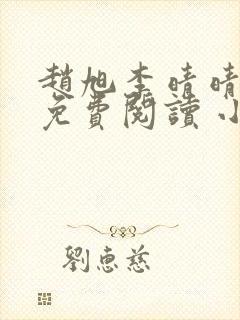 趙旭李晴晴
免費閱讀小
劉惠慈